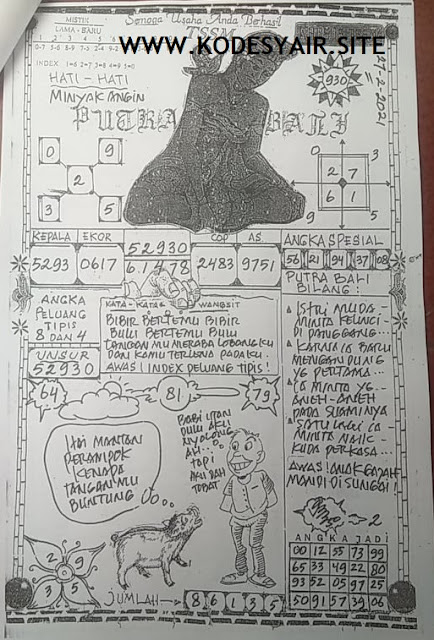 Semoga Usaha Anda Berhasil
MISTIK
LAMA - BARU
TSSM
WWW.KODESYAIR.SITE
INDEX 1=6 2=7 3=8 4=9 5=0
HATI - HATI
MINYAK ANGIN
930
27-2-2021
PUTRA BALI
0 9
2
3 5
0 3
2 7
6 1
9 5
KEPALA EKOR
5293 0617
52930
61478
COP AS
2483 9751
ANGKA SPESIAL
56 21 94 37 08
ANGKA
PELUANG
TIPIS
8 DAN 4
UNSUR
52930
KATA - KATA WANGSIT
BIBIR BERTEMU BIBIR
BULU BERTEMU BULU
TANGAN MU MERABA LOBANGKU
DAN KAMU TERLENA PADAKU.
AWAS! INDEX PELUANG TIPIS!
PUTRA BALI
BILANG:
ISTRI MUDA
MINTA KELINCI
DI PANGGANG...
KARNA IA BARU
MENGANDUNG
YG PERTAMA...
IA MINTA YG
ANEH-ANEH
PADA SUAMINYA
SATU LAGI IA
MINTA NAIK
KUDA PERKASA...
AWAS! ANAK GAJAH
MANDI DI SUNGAI!
64 81 79
HAI MANTAN
PERAMPOK
KENAPA
TANGAN MU
BUNTUNG
BABI UTAN
DULU AKU
NYOLONG
TAPI
AKU DAH
TOBAT
2 9
3 5
JUMLAH → 8 6 1 3 5
2
ANGKA JADI
00 12 55 73 99
65 33 49 22 80
93 52 05 97 25
50 91 57 39 06